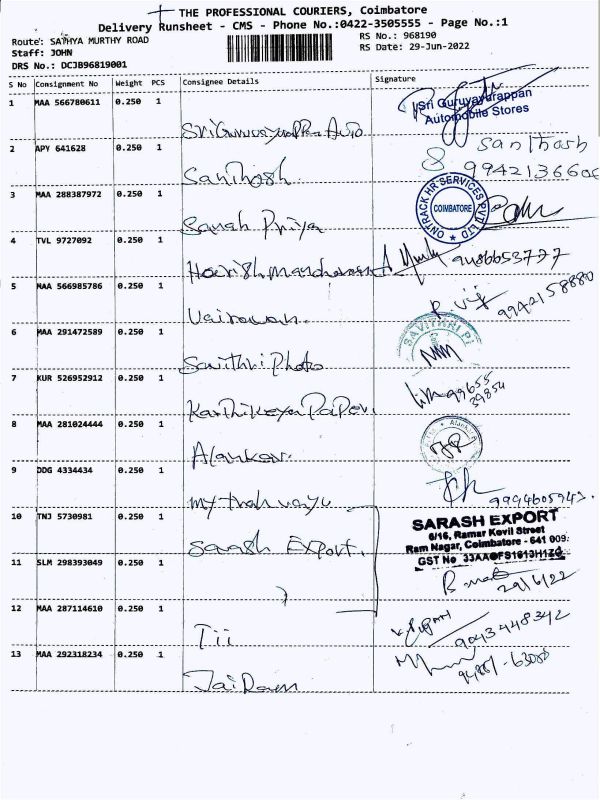 THE PROFESSIONAL COURIERS, Coimbatore
Delivery Runsheet - CMS - Phone No.:0422-3505555 - Page No.:1
Route: SATHYA MURTHY ROAD
RS No.: 968190
Staff: JOHN
RS Date: 29-Jun-2022
DRS No.: DCJB96819001
S No Consignment No Weight PCS Consignee Details Signature
1 MAA 566780611 0.250 1
Sri Guruvayurappan
Automobile Stores
2 APY 641628 0.250 1 Santhosh
Santhosh.
3 MAA 288387972 0.250 1
ONTRACK HR SERVICES PVT LTD
COIMBATORE
Sarah Priya
4 TVL 9727092 0.250 1
9486653777
5 MAA 566985786 0.250 1
9942158880
6 MAA 291472589 0.250 1
SAVITHRI
Savithri Photo
7 KUR 526952912 0.250 1
99655
39854
Karthikeya Paper.
8 MAA 281024444 0.250 1
Alankar.
9 DDG 4334434 0.250 1
10 TNJ 5730981 0.250 1
SARASH EXPORT
6/16, Ramar Kovil Street
Ram Nagar, Coimbatore - 641 009.
Sarash Export.
11 SLM 298393049 0.250 1
29/6/22
12 MAA 287114610 0.250 1
9043448342
13 MAA 292318234 0.250 1
Jai Ram